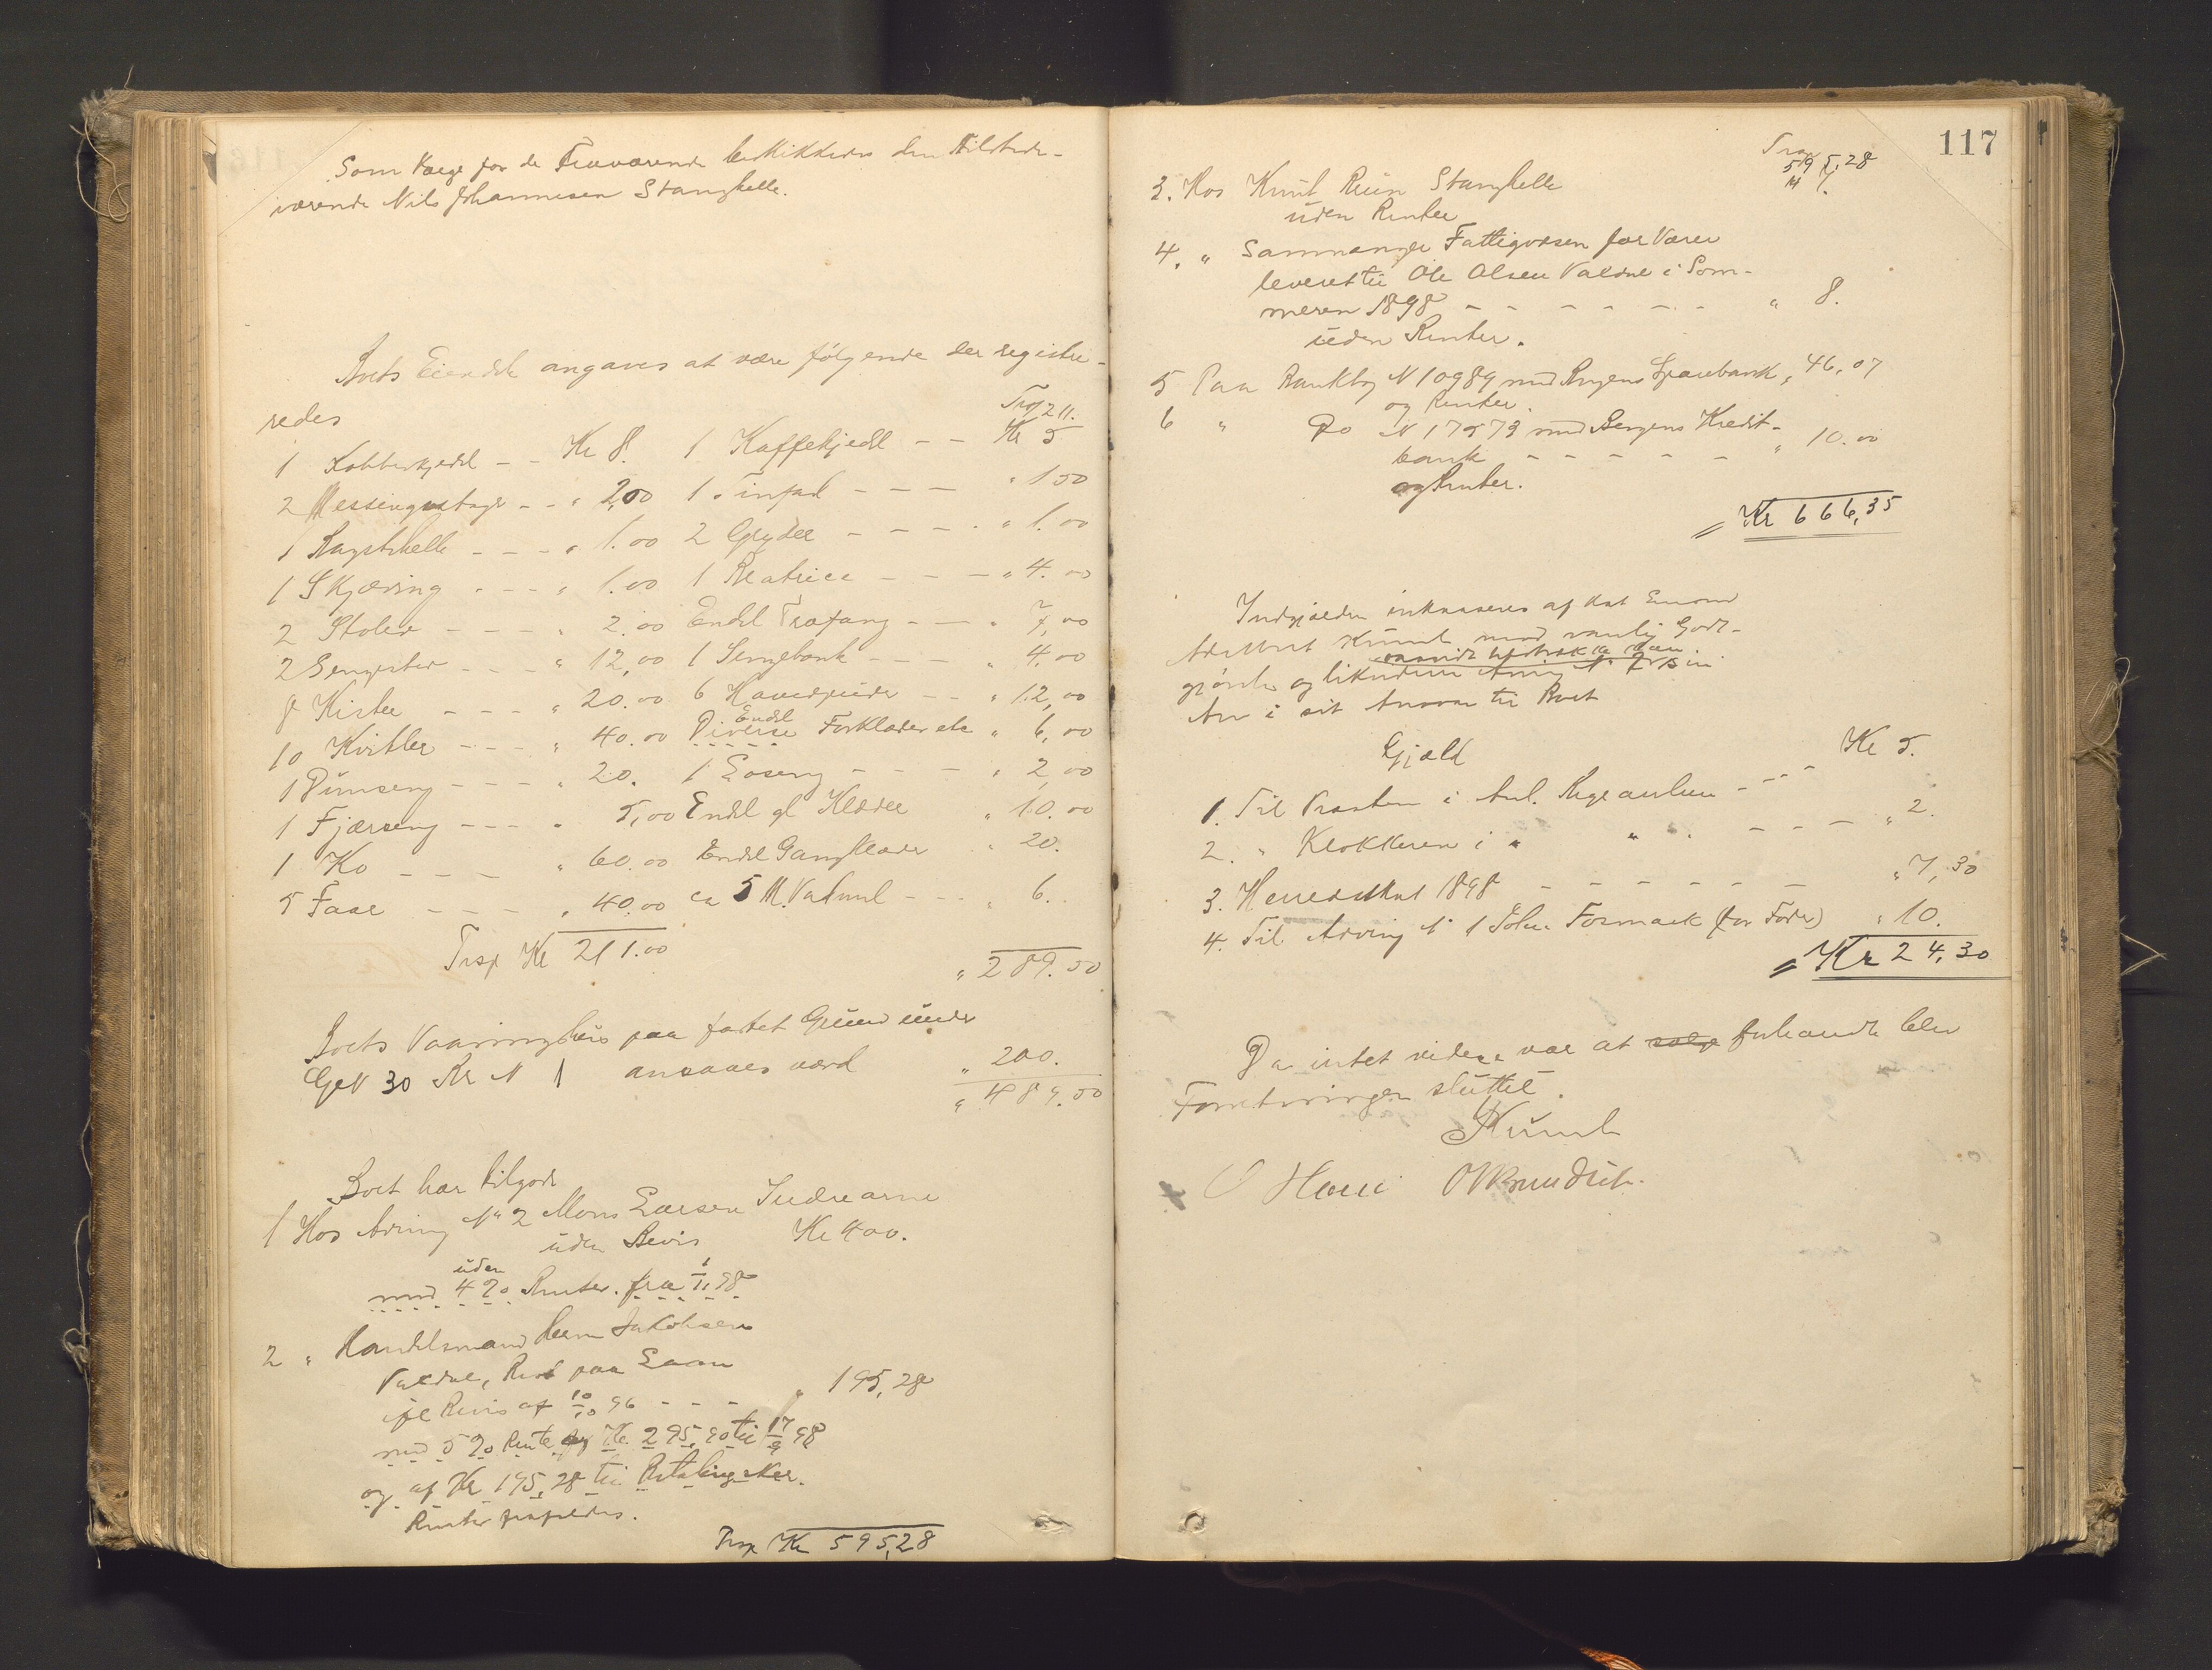 Som Værge for de Fraværende beskikkedes den tilstede-
værende Nils Johannesen Stanghelle.
Boets Eiendele angaves at være følgende der registre-
redes
Trsp 211.
1 Kobberkjedel - - Kr 8. 1 Kaffekjedel - - Kr 5
2 Messingstager - - " 2,00 1 Tinfad - - - " 1 50
1 Bagstehelle - - - " 1.00 2 Gryder - - - " 1.00
1 Skjæring - - - " 1.00 1 - - - " 4.00
2 Stoler - - - " 2.00 Endel Træfang - - " 7,00
2 Sengsteder - - - " 12,00 1 Sengebænk - - - " 4.00
8 Kister - - - " 20.00 6 Hovedpuder - - " 12,00
10 Kvitler - - - " 40.00 Diverse Endel Forklæder etc " 6,00
1 Dunseng - - - " 20. 1 - - - " 2,00
1 Fjærseng - - - " 5,00 Endel gl Klæder " 10.00
1 Ko - - - " 60.00 Endel Gangklæder " 20.
5 Faar - - - " 40.00 ca 5 M. Vadmel - - - " 6.
Trsp Kr 211.00
" 289.50
Boets Vaaningshus paa festet Grund under
GrN 30 Br N 1 ansaaes værd " 200.
" 489.50
Boet har tilgode
1 Hos Arving N° 2 Mons Larsen Indrearne
uden Bevis Kr 400.
uden
med 4 % Renter. fra 1/1 98
2 " Handelsmand Jakobsen
Valdne, Rest paa Laan
ifl Bevis af 10/10 96 - - - " 195,28
med 5 % Rente af Kr. 295,90 til 17/9 98
og af Kr 195,28 til Betaling sker.
Renter frafaldes.
Trsp Kr 595,28
117
Trsp
595,28
3. Hos Knut Stanghelle " 7.
uden Renter
4. " Samnanger Fattigvæsen for Varer
leveret til Ole Olsen Valdne i Som-
meren 1898 - - - - - - " 8.
uden Renter.
5 Paa Bankbog N 10989 med Bergens Sparebank " 46,07
og Renter.
6 " Do N 17573 med Bergens Kredit-
bank - - - - - " 10.00
og Renter.
Kr 666,35
Indgjælden inkasseres af
med vanlig Godt-
gjørelse og Arving N° 2
i sit Ansvar til Boet
Gjæld
1. Til Præsten i Anl. - - - Kr 5.
2. " Klokkeren i " " " - - - " 2.
3. Herredsskat 1898 - - - - - - " 7,30
4. Til Arving N° 1 Formark (for Foder) " 10.
Kr 24,30
Da intet videre var at forhandle blev
Forretningen sluttet.